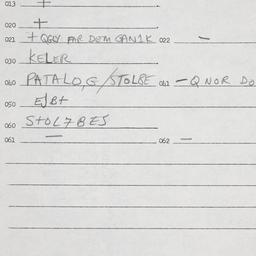 013 +
020 +
021 + QGY FAR DEM GAN1K 022 —
030 KELER
040 PATALO,G/STOLBE 041 —Q NOR DO
050 EJBt
060 StOL7BES
061 — 062 —